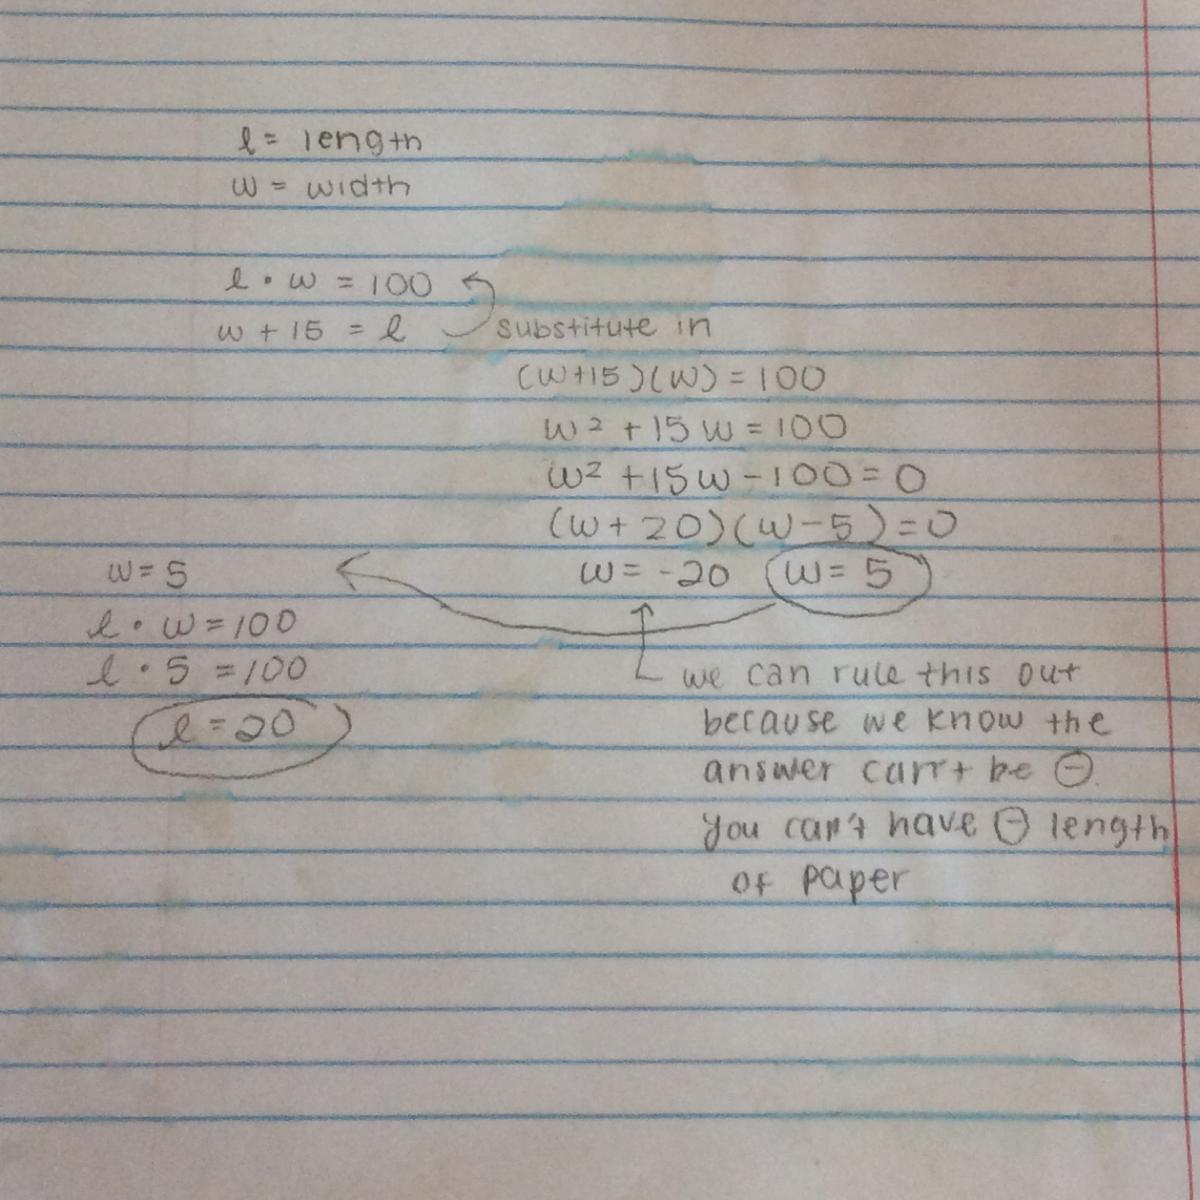 l = length
w = width
l · w = 100
w + 15 = l
substitute in
(w+15)(w) = 100
w² + 15w = 100
w² + 15w - 100 = 0
(w + 20)(w - 5) = 0
w = -20 w = 5
we can rule this out
because we know the
answer can't be ⊖.
you can't have ⊖ length
of paper
w = 5
l · w = 100
l · 5 = 100
l = 20